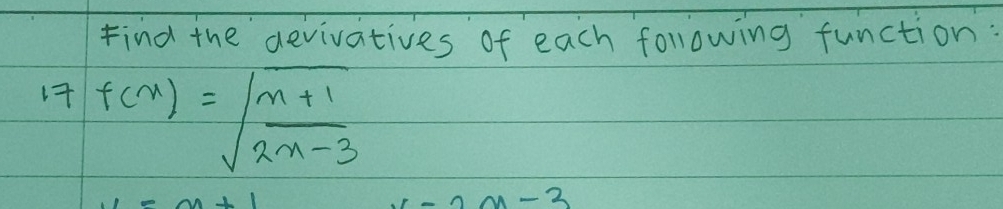 Find the derivatives of each following function:
17 f(x) = √(x + 1 / 2x - 3)
u = x + 1 v = 2x - 3